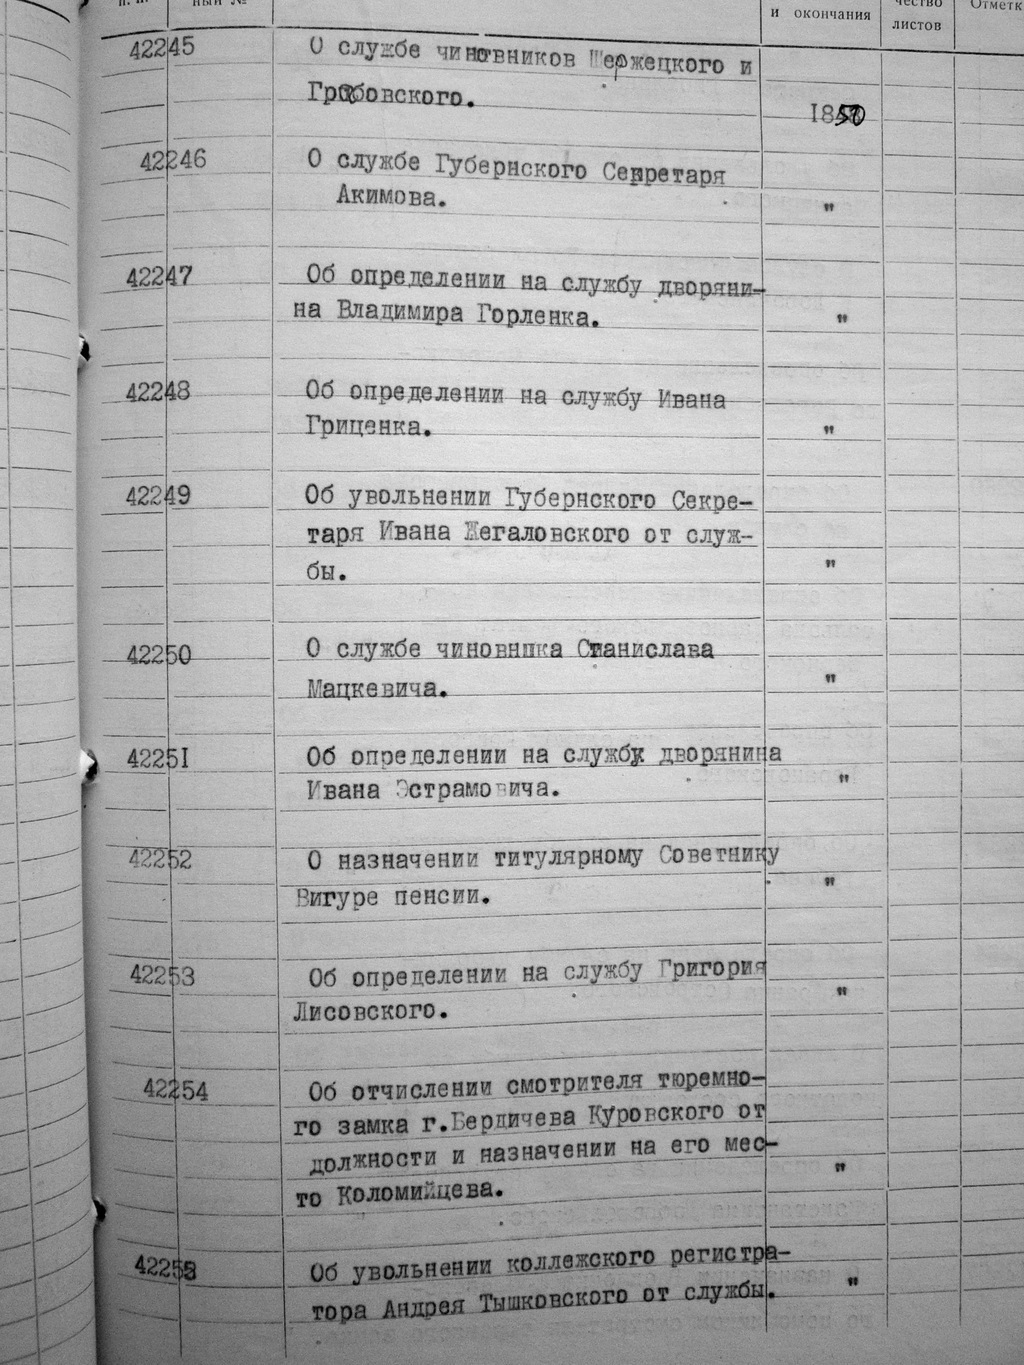 п. п.
ный №
и окончания
чество
листов
Отметк
42245
О службе чиновников Шержецкого и
Грабовского.
1850
42246
О службе Губернского Секретаря
Акимова.
"
42247
Об определении на службу дворяни-
на Владимира Горленка.
"
42248
Об определении на службу Ивана
Гриценка.
"
42249
Об увольнении Губернского Секре-
таря Ивана Жегаловского от служ-
бы.
"
42250
О службе чиновника Станислава
Мацкевича.
"
42251
Об определении на службу дворянина
Ивана Эстрамовича.
"
42252
О назначении титулярному Советнику
Вигуре пенсии.
"
42253
Об определении на службу Григория
Лисовского.
"
42254
Об отчислении смотрителя тюремно-
го замка г.Бердичева Куровского от
должности и назначении на его мес-
то Коломийцева.
"
Об увольнении коллежского регистра-
тора Андрея Тышковского от службы.
"